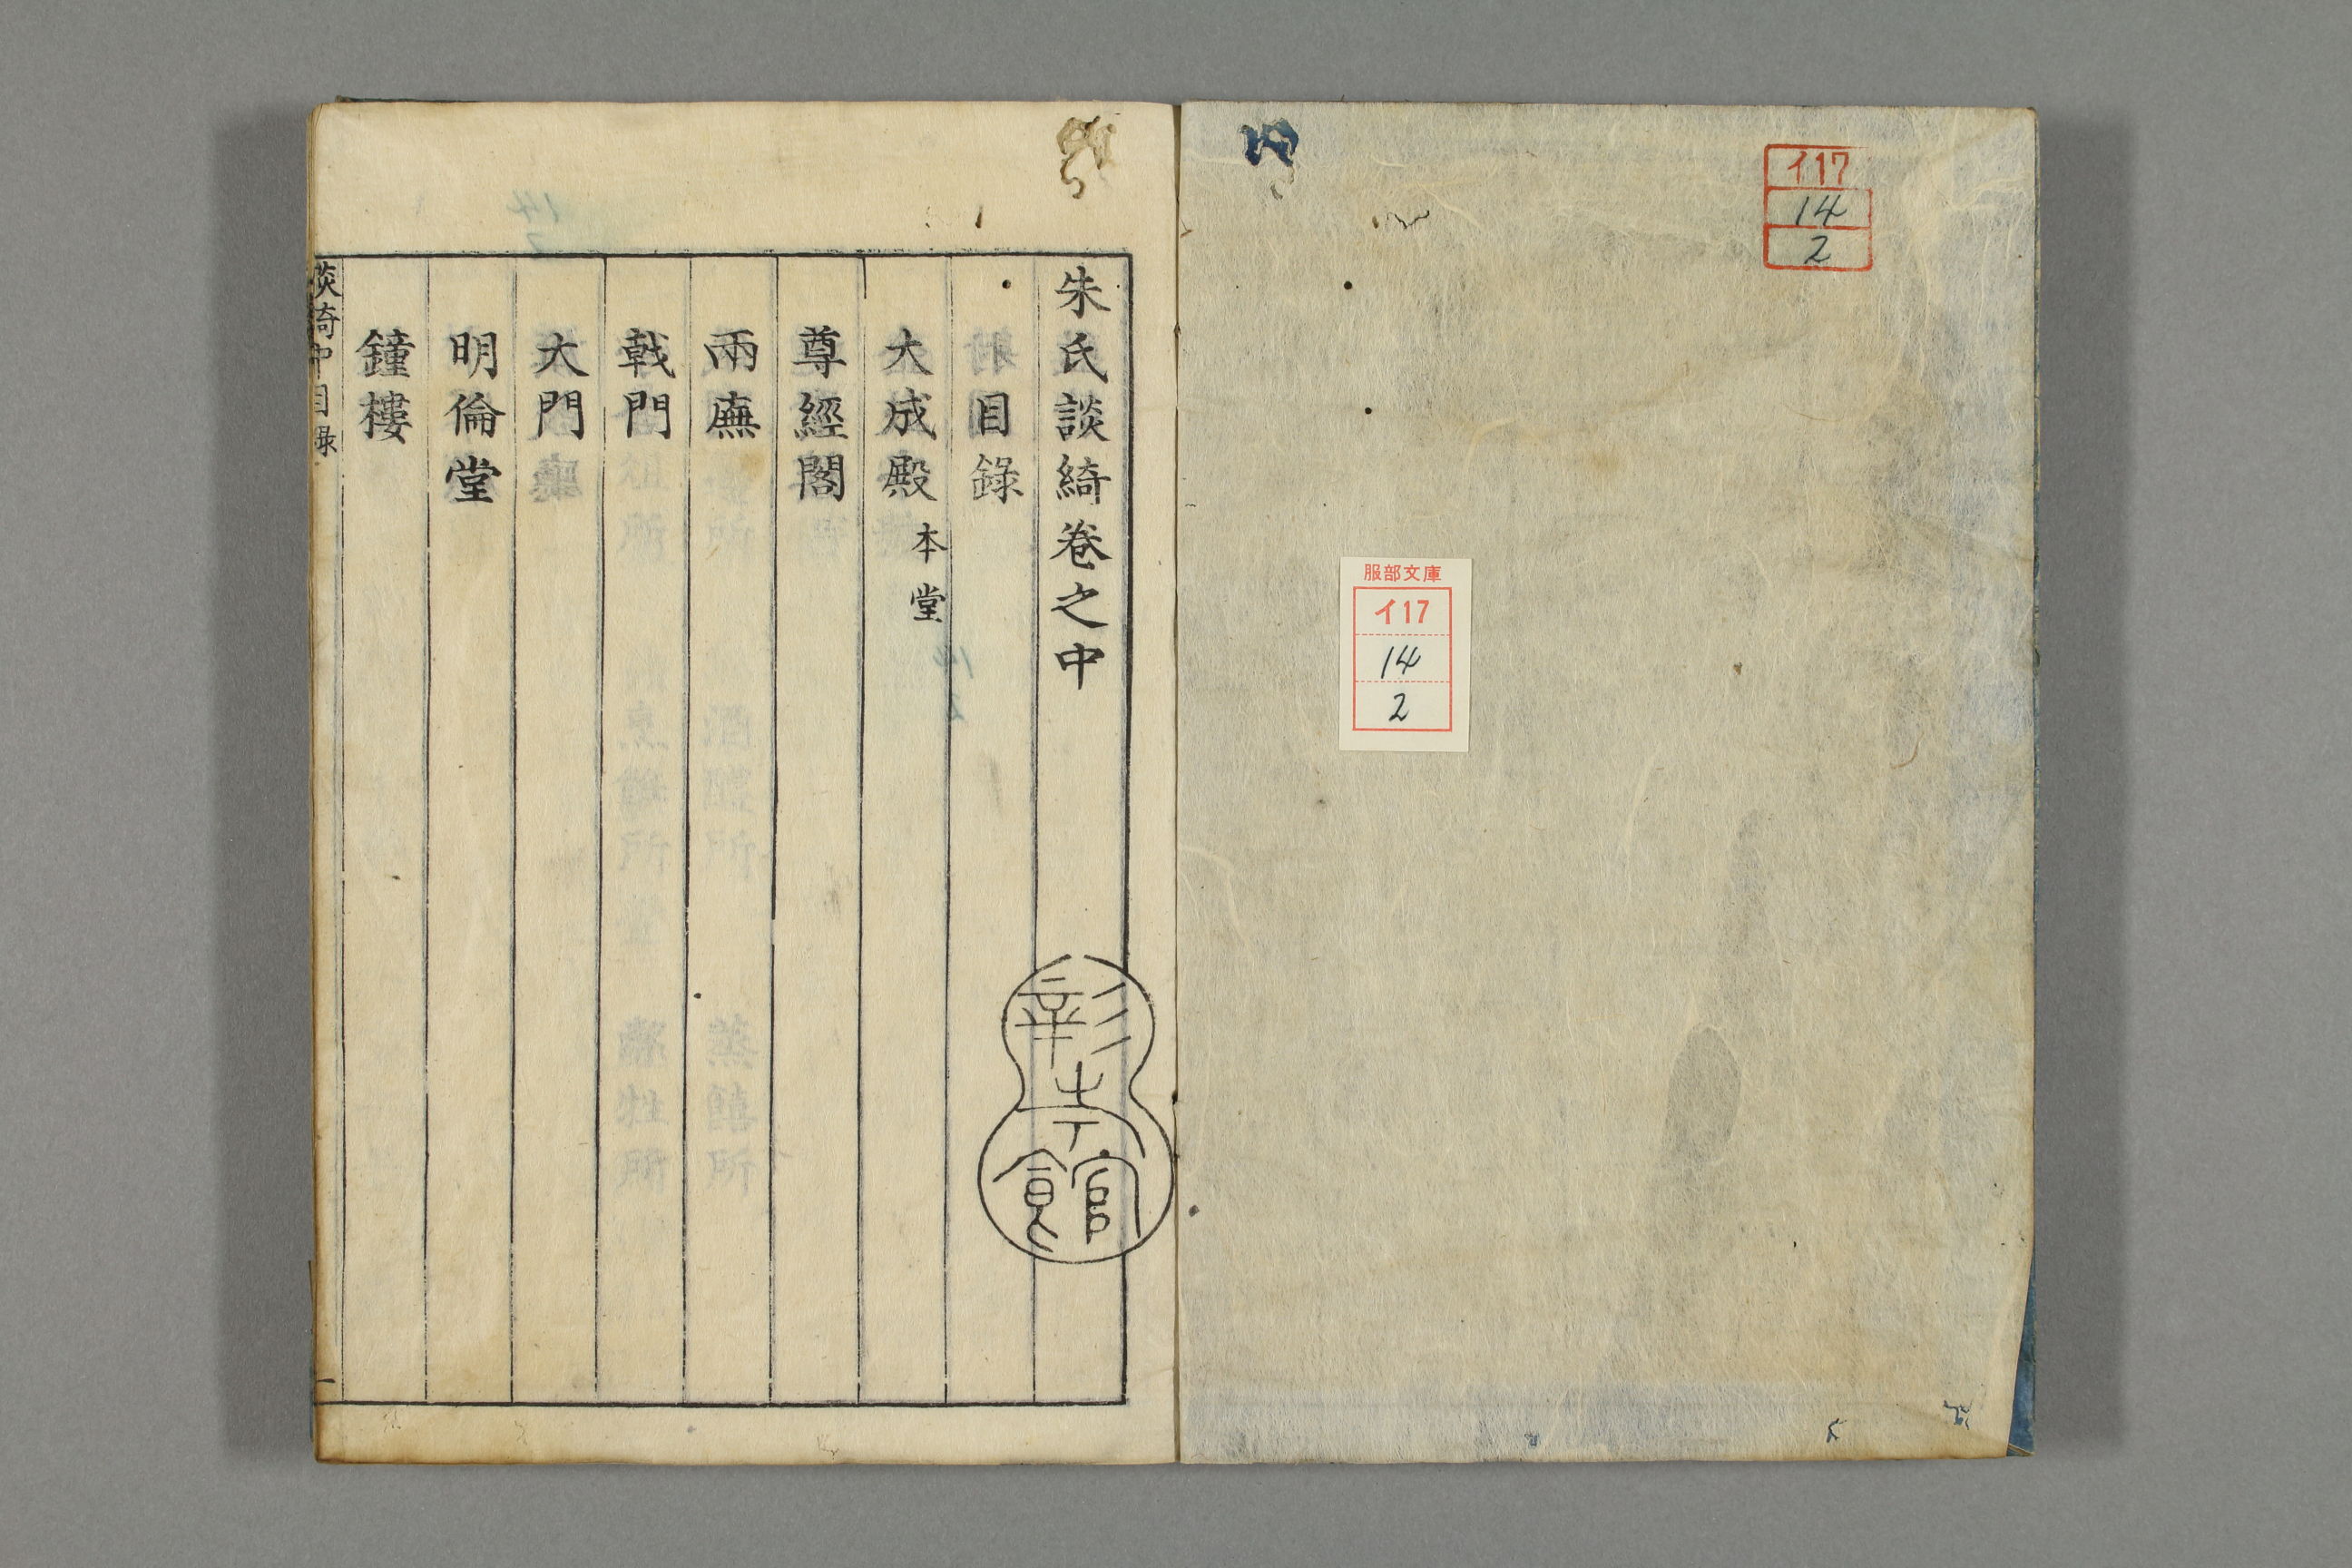 イ17
14
2
服部文庫
イ17
14
2
朱氏談綺卷之中
目錄
大成殿 本堂
尊經閣
兩廡
戟門
大門
明倫堂
鐘樓
談綺中目錄
一
彰考館